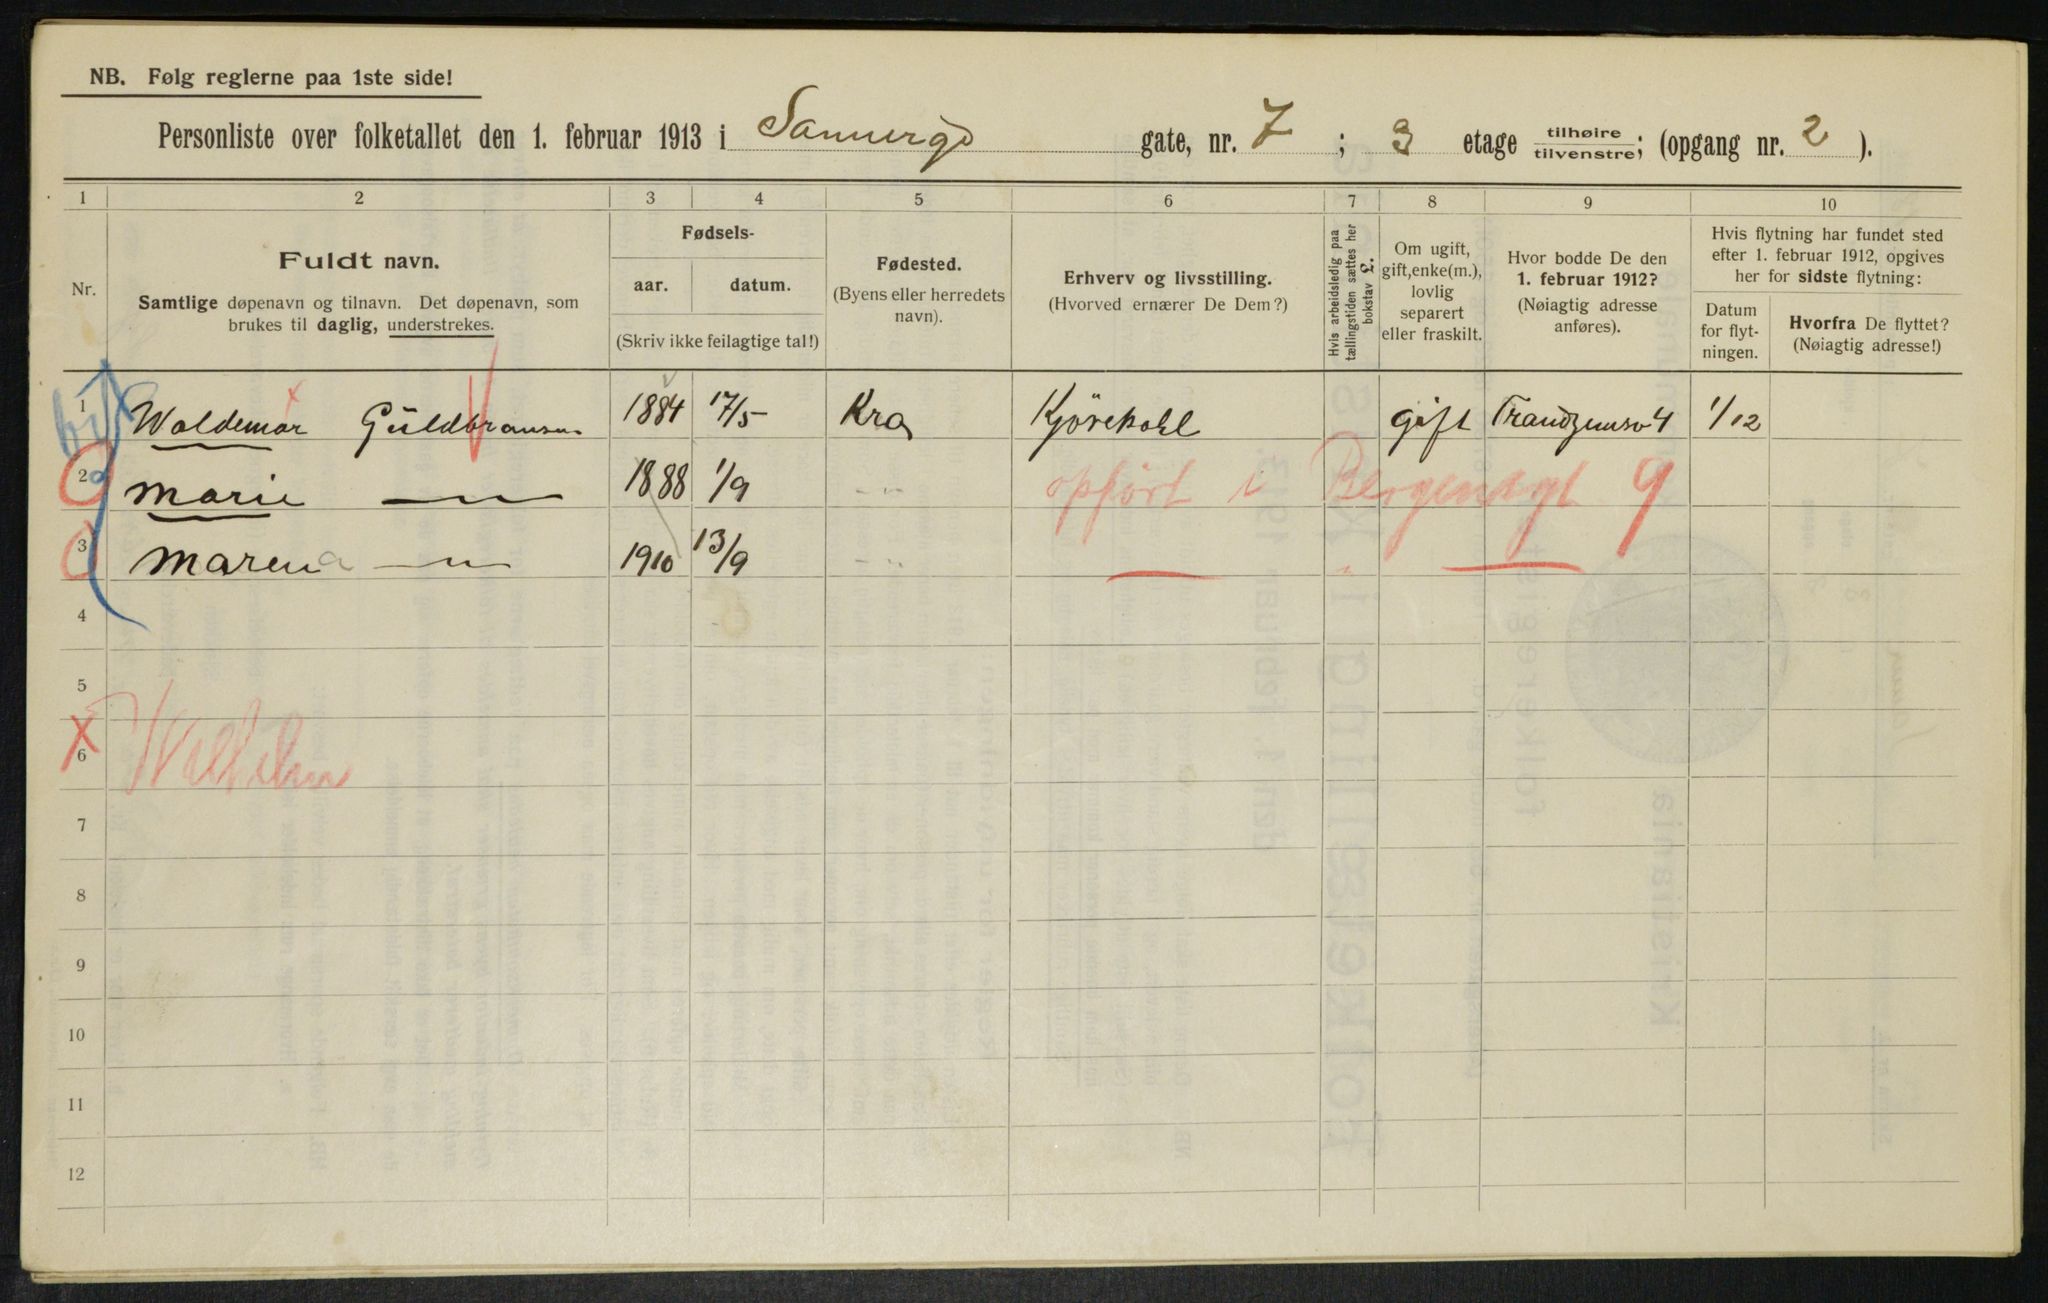 NB. Følg reglerne paa 1ste side!
Personliste over folketallet den 1. februar 1913 i Sannergd gate, nr. 7 ; 3 etage tilhøire tilvenstre; (opgang nr. 2 ).
1 2 3 4 5 6 7 8 9 10
Nr.
Fuldt navn.
Samtlige døpenavn og tilnavn. Det døpenavn, som
brukes til daglig, understrekes.
Fødsels-
aar. datum.
(Skriv ikke feilagtige tal!)
Fødested.
(Byens eller herredets
navn).
Erhverv og livsstilling.
(Hvorved ernærer De Dem?)
Hvis arbeidsledig paa
tællingstiden sættes her
bokstav £.
Om ugift,
gift, enke(m.),
lovlig
separert
eller fraskilt.
Hvor bodde De den
1. februar 1912?
(Nøiagtig adresse
anføres).
Hvis flytning har fundet sted
efter 1. februar 1912, opgives
her for sidste flytning:
Datum
for flyt-
ningen.
Hvorfra De flyttet?
(Nøiagtig adresse!)
1 Waldemar Güldbransen 1884 17/5 Kra Kjörekahl gift 4 1/12
2 Marie — " — 1888 1/9 - " - opført i Bergensgt 9
3 Maren — " — 1910 13/9 - " -
4
5
6 x Wilhelm
7
8
9
10
11
12